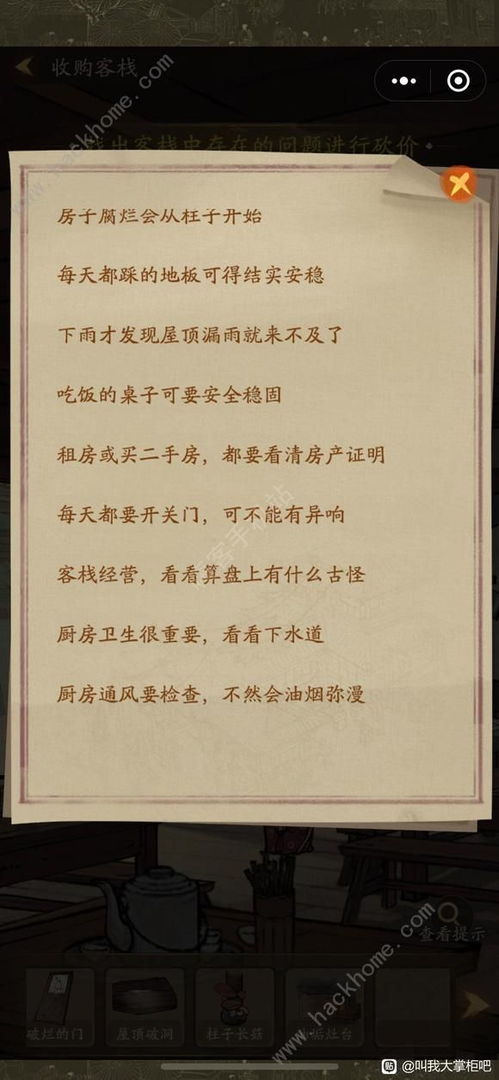 收购客栈
找出客栈中存在的问题进行砍价
房子腐烂会从柱子开始
每天都踩的地板可得结实安稳
下雨才发现屋顶漏雨就来不及了
吃饭的桌子可要安全稳固
租房或买二手房，都要看清房产证明
每天都要开关门，可不能有异响
客栈经营，看看算盘上有什么古怪
厨房卫生很重要，看看下水道
厨房通风要检查，不然会油烟弥漫
查看提示
破烂的门
屋顶破洞
柱子长菇
灶台
www.hackhome.com
@叫我大掌柜吧